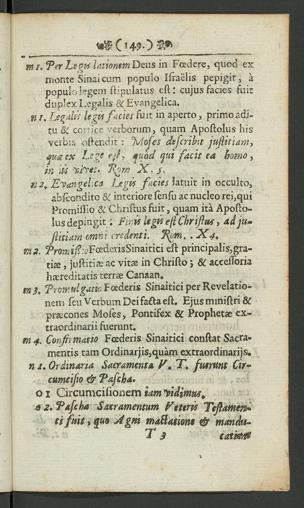 (149.)
m 1. Per Legis lationem Deus in Fœdere, quod ex
monte Sinai cum populo Israëlis pepigit, à
populo legem stipulatus est: cujus facies fuit
duplex Legalis & Evangelica.
n 1. Legalis legis facies fuit in aperto, primo adi-
tu & cortice verborum, quam Apostolus his
verbis ostendit: Moses describit justitiam,
quæ ex Lege est, quòd qui facit ea homo,
in iis vivet. Rom X. 5.
n 2. Evangelica Legis facies latuit in occulto,
abscondito & interiore sensu ac nucleo rei, qui
Promissio & Christus fuit, quam ità Aposto-
lus depingit: Finis legis est Christus, ad ju-
stitiam omni credenti. Rom. X 4.
m 2. Promissio Fœderis Sinaitici est principalis, gra-
tiæ, justitiæ ac vitæ in Christo; & accessoria
hæreditatis terræ Canaan.
m 3. Promulgatio Fœderis Sinaitici per Revelatio-
nem seu Verbum Dei facta est. Ejus ministri &
præcones Moses, Pontifex & Prophetæ ex-
traordinarii fuerunt.
m 4. Confirmatio Fœderis Sinaitici constat Sacra-
mentis tam Ordinarjis, quàm extraordinarijs.
n 1. Ordinaria Sacramenta V. T. fuerunt Cir-
cumcisio & Pascha.
o 1 Circumcisionem iam vidimus.
o 2. Pascha Sacramentum Veteris Testamen-
ti fuit, quo Agni mactatione & mandu-
T 3 catione